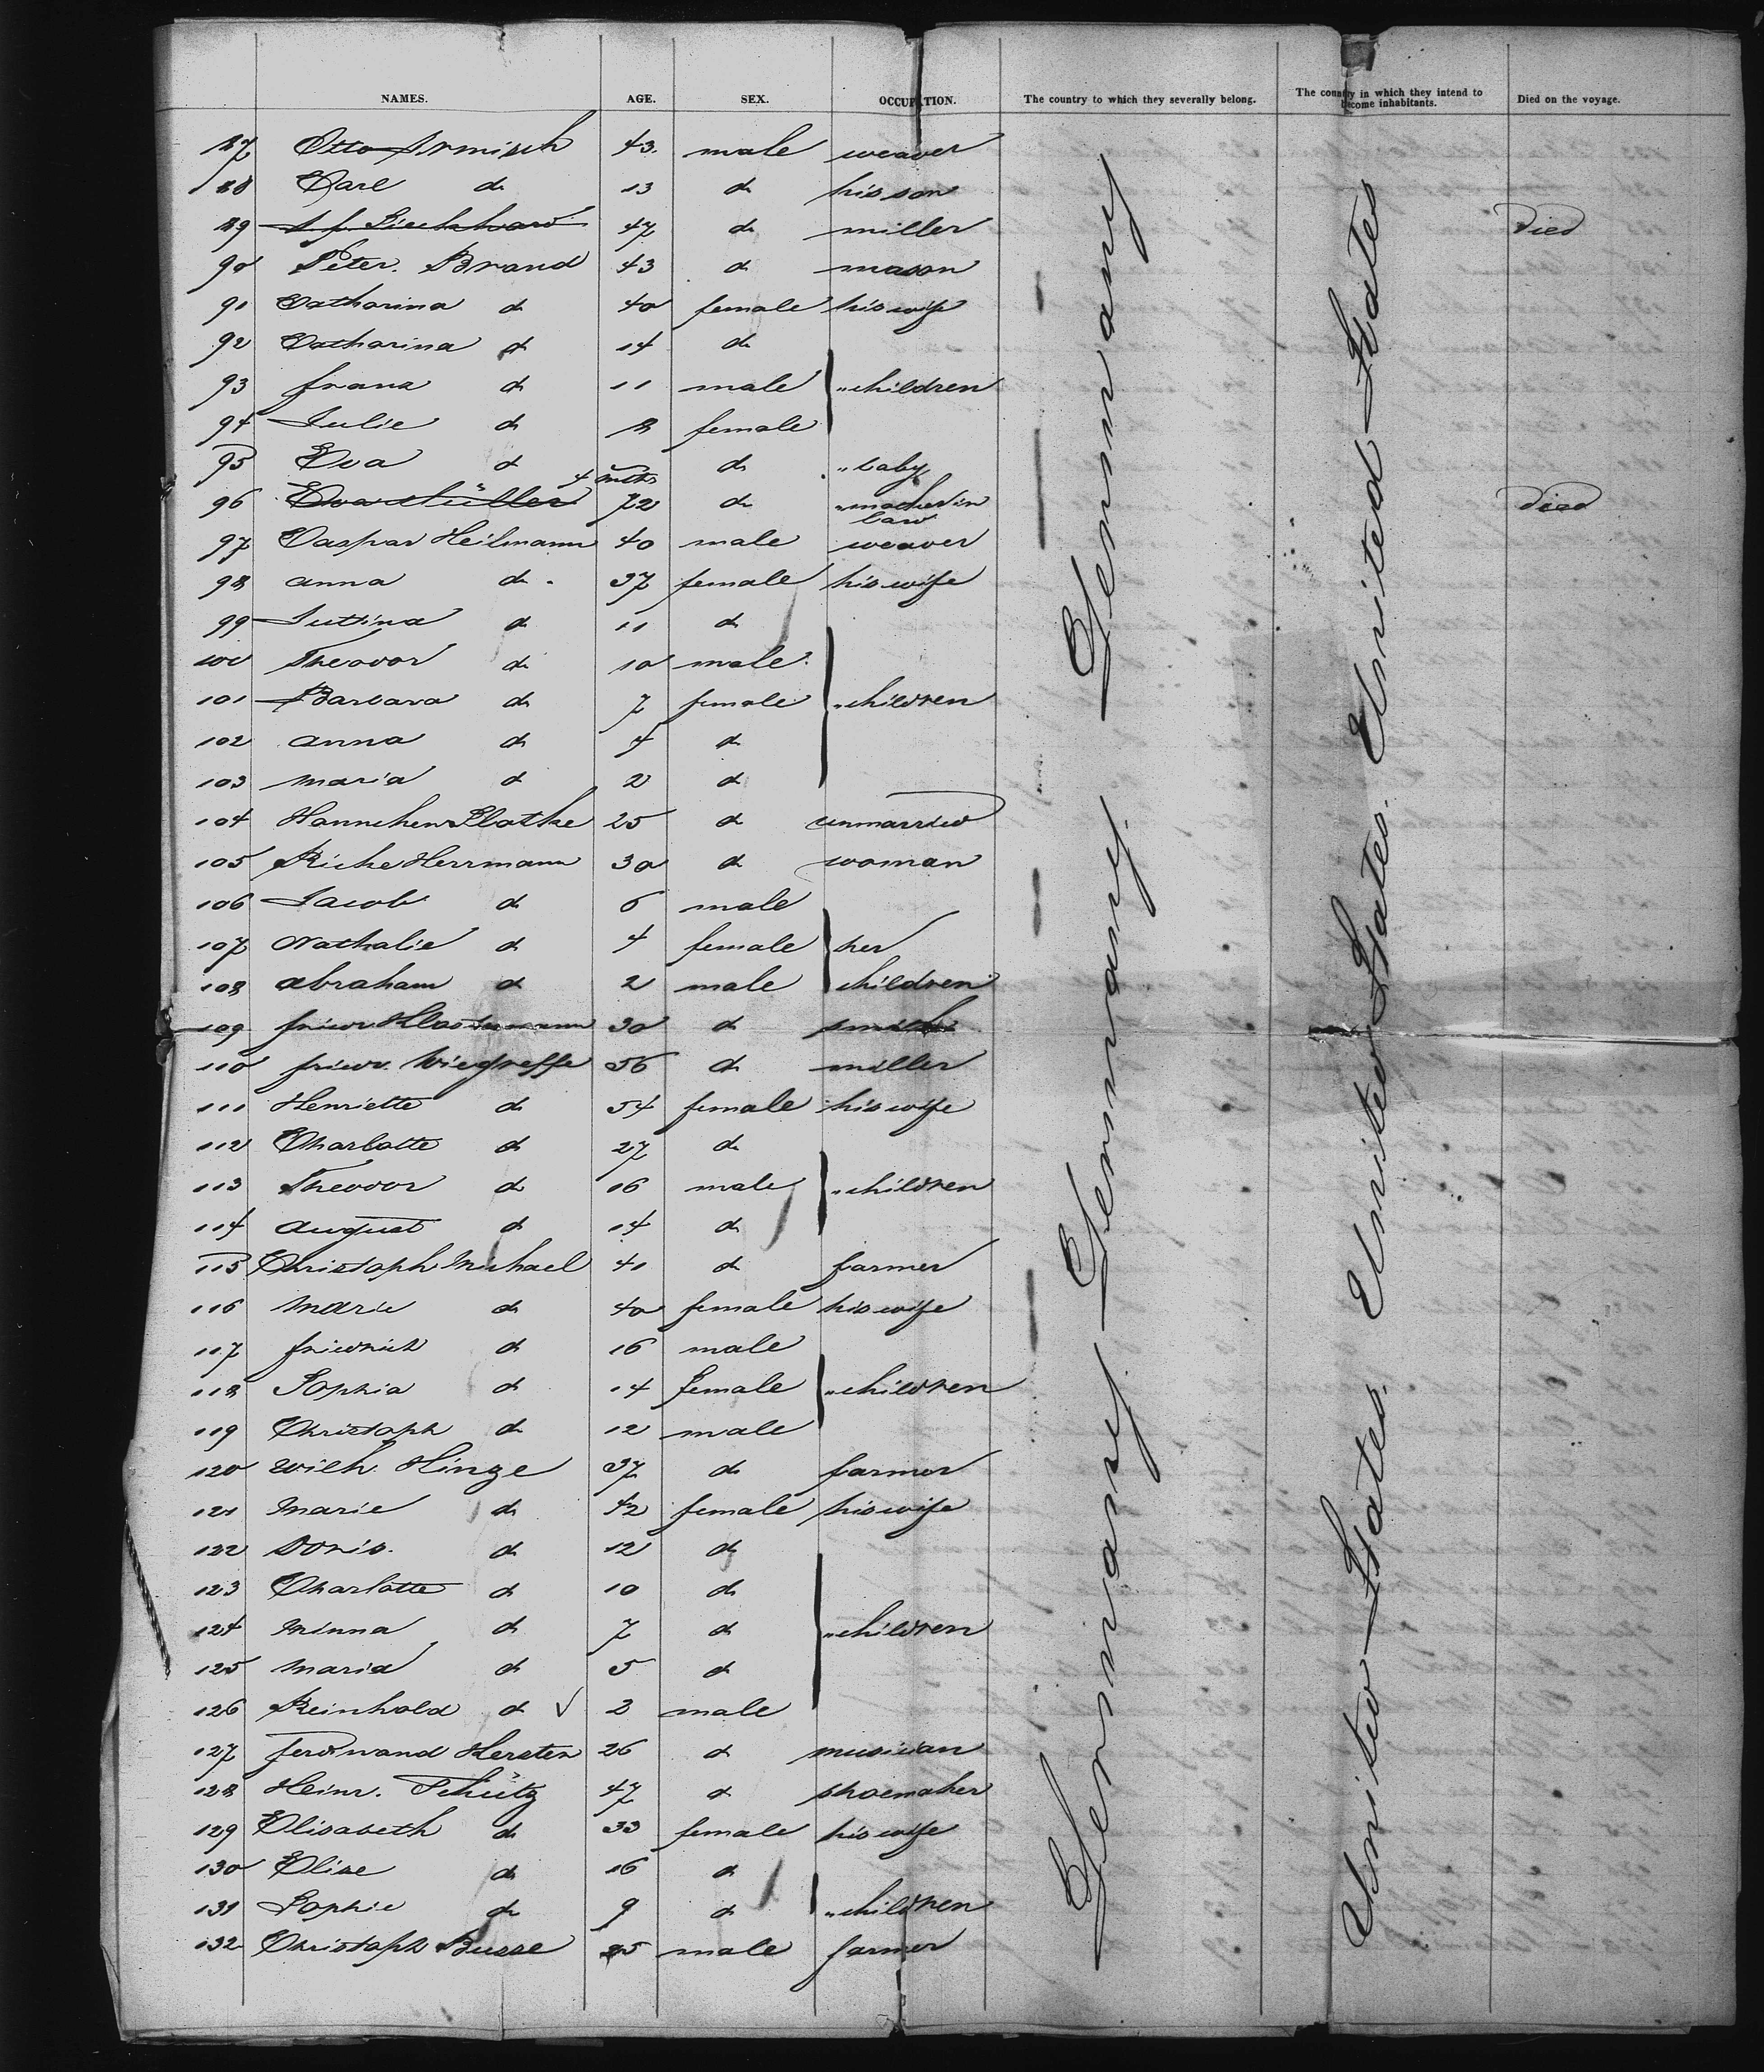 NAMES. AGE. SEX. OCCUPATION. The country to which they severally belong. The country in which they intend to become inhabitants. Died on the voyage.
87 Otto Armisch 43. male weaver
88 Carl do 13 do his son
89 47 do miller Died
90 Peter. Brand 43 do mason
91 Catharina do 40 female his wife
92 Catharina do 14 do
93 franz do 11 male " children
94 Julie do 8 female
95 Eva do 4 mths do " baby
96 Eva Müller 72 do " mother in law Died
97 Caspar Heilmann 40 male weaver
98 anna do. 37 female his wife
99 Juttina do 11 do
100 Theodor do 10 male.
101 Barbara do 7 female " children
102 anna do 4 do
103 maria do 2 do
104 Hannchen Plathe 25 do unmarried
105 Riche Herrmann 30 do woman
106 Jacob do 6 male
107 Nathalie do 4 female her
108 abraham do 2 male children
109 friedr. Klostermann 30 do smith
110 friedr. Wiegreffe 56 do miller
111 Henriette do 54 female his wife
112 Charlotte do 27 do
113 Theodor do 16 male " children
114 august do 14 do
115 Christoph Michael 41 do farmer
116 Marie do 40 female his wife
117 friedrich do 16 male
118 Sophia do 14 female " children
119 Christoph do 12 male
120 Wilh. Hinze 37 do farmer
121 Marie do 42 female his wife
122 Doris. do 12 do
123 Charlotte do 10 do
124 Minna do 7 do " children
125 Maria do 5 do
126 Reinhold do √ 2 male
127 ferdinand Kersten 26 do musician
128 Heinr. Schütz 47 do shoemaker
129 Elisabeth do 33 female his wife
130 Elise do 16 do
131 Sophie do 9 do " children
132 Christoph Busse 25 male farmer
Germany Germany. Germany Germany
United States. United States. United States